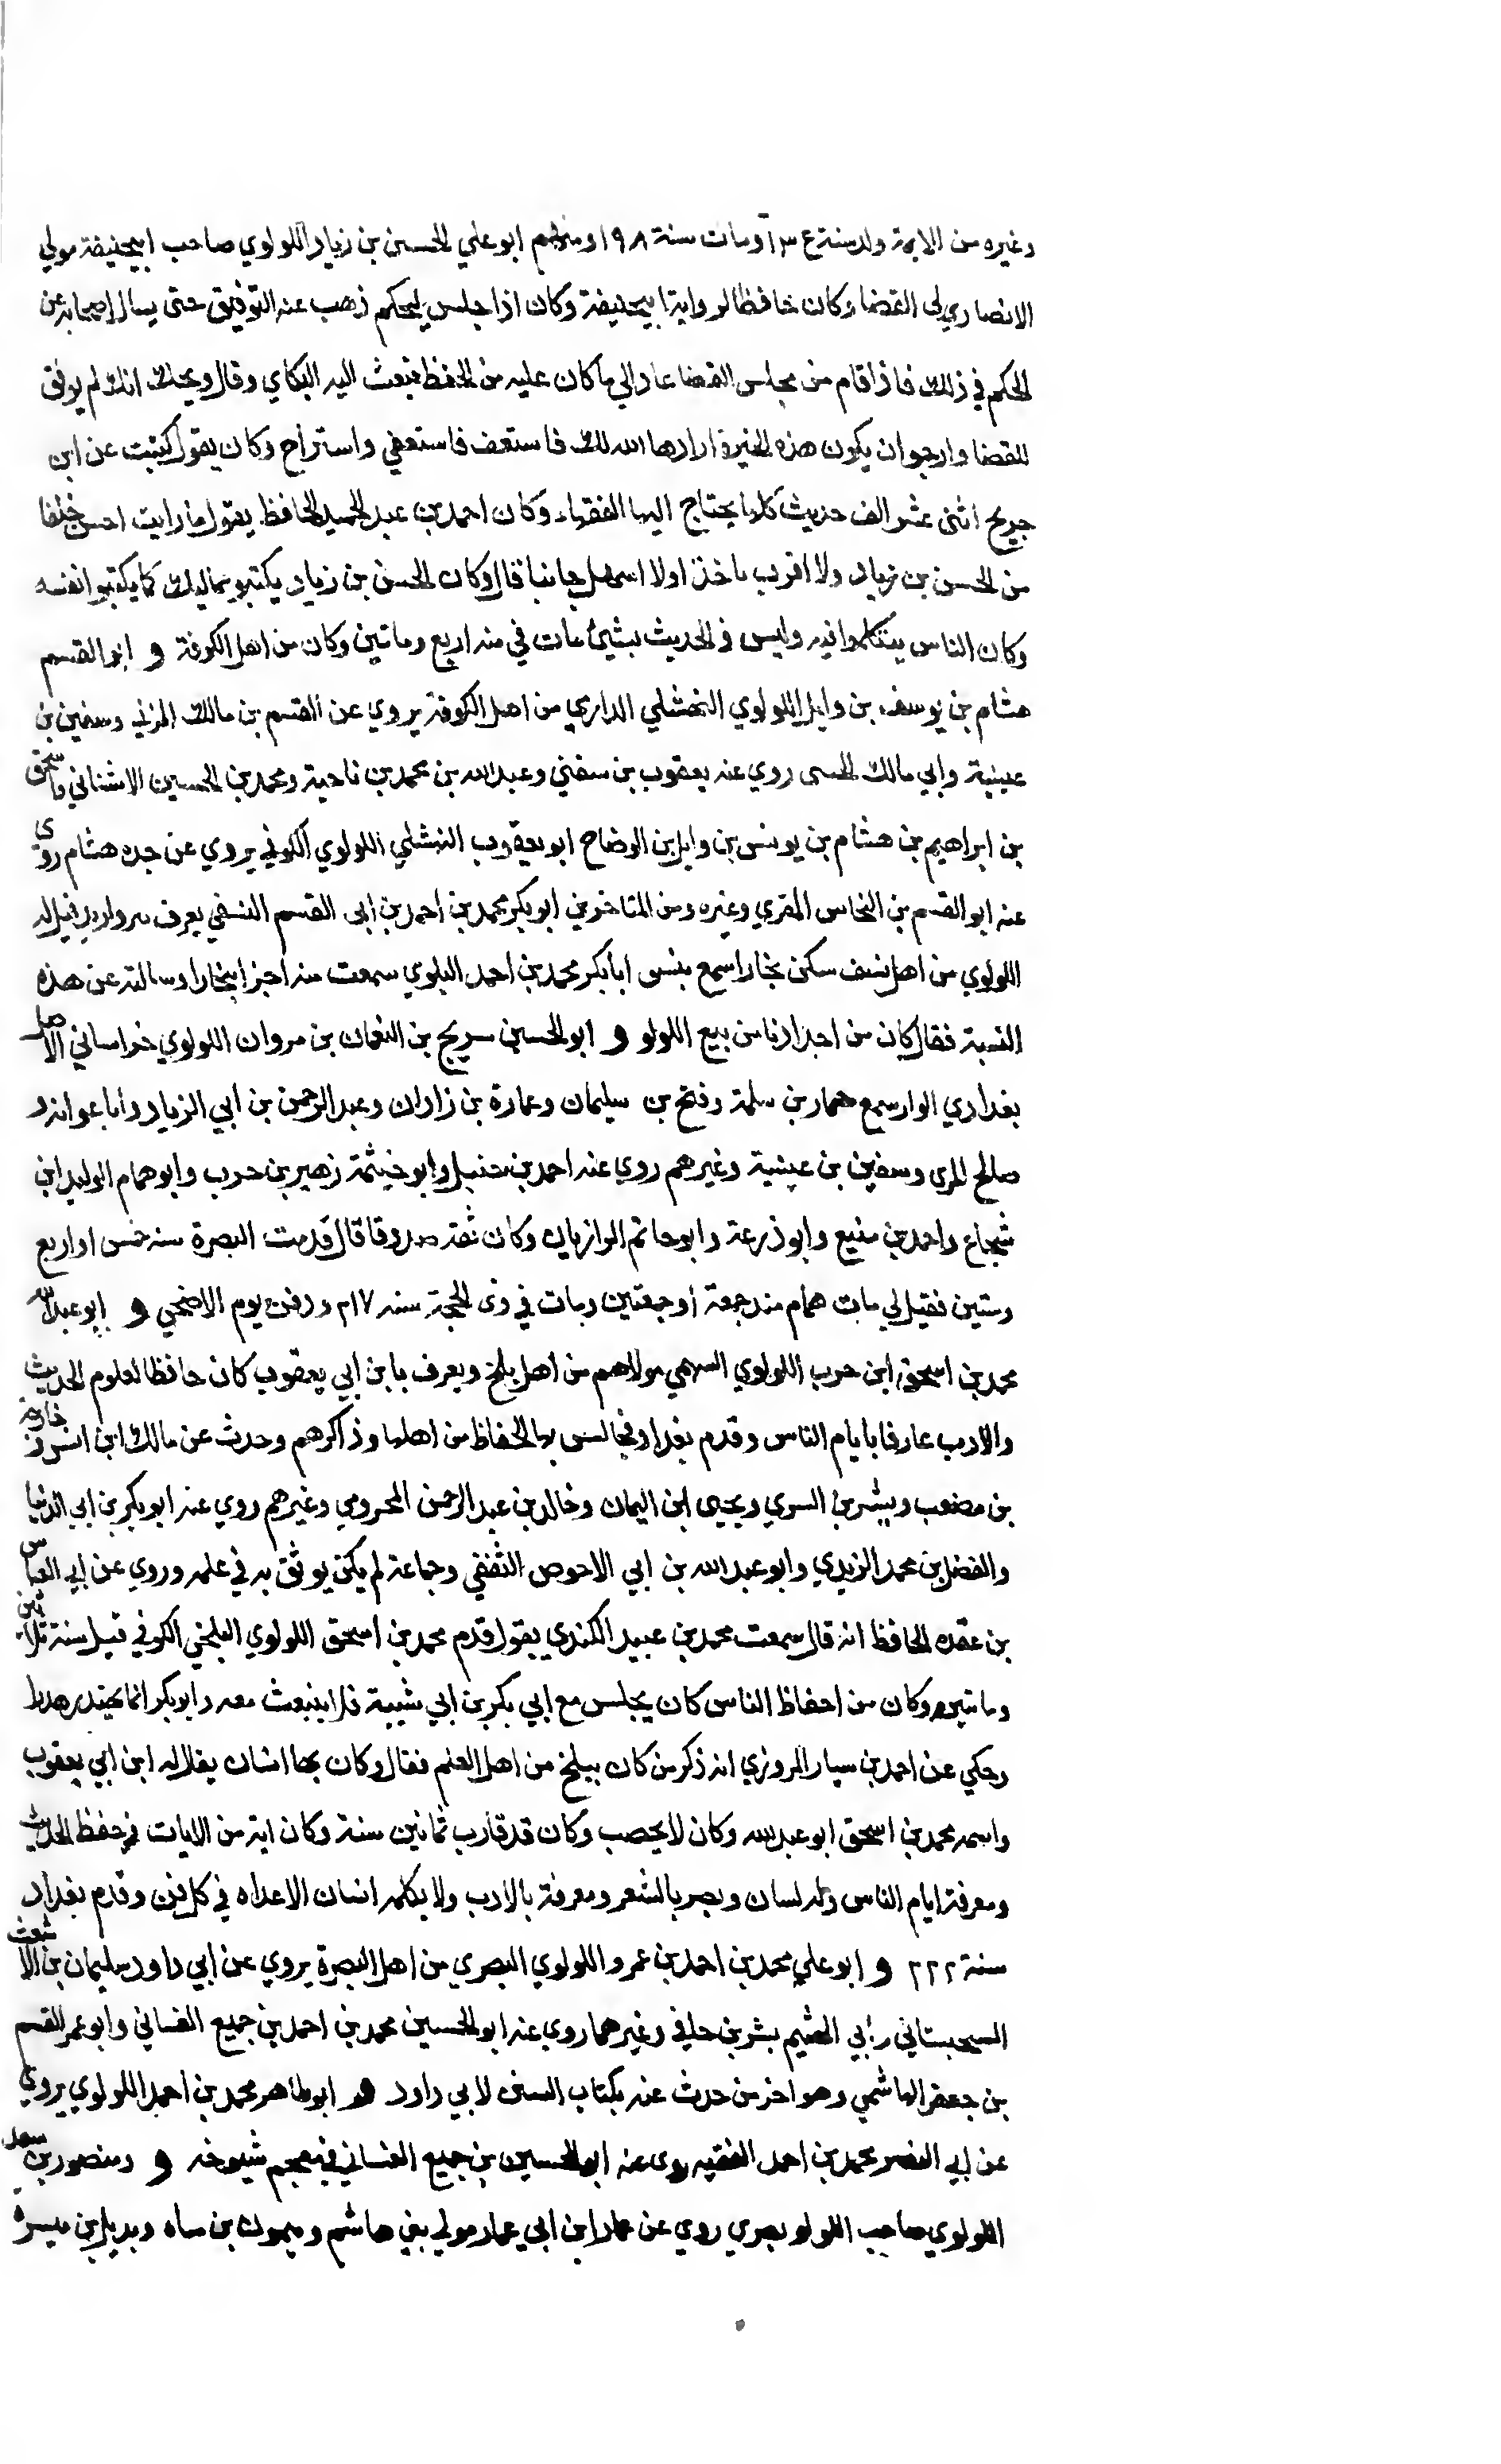 وغيره من الايمة ولد سنة ١٣٤ ومات سنة ١٩٨ ومنهم ابو علي الحسين بن زياد اللولوي صاحب ابيحنيفة مولي
الانصار ي لي القضا وكان حافظا لرواية ابيحنيفة وكان اذا جلس ليحكم ذهب عنه التوفيق حتى يسال اصحابه عن
الحكم في ذلك فاذا قام من مجلس القضا عاد الي ما كان عليه من الحفظ فبعث اليه البكاي وقال ويحك انك لم يوفق
للقضا وارجوان يكون هذه الخيرة ارادها الله لك فاستعف فاستعفي واستراح وكان يقول كتبت عن ابن
جريح اثنى عشر الف حديث كلها يحتاج اليها الفقهاء وكان احمد بن عبد الحميد الحافظ يقول ما رايت احسن خلقا
من الحسن بن زياد ولا اقرب ماخذا ولا اسهل جانبا قال وكان الحسن بن زياد يكتبو مماليك كما يكتبو انفسه
وكان الناس يتكلموا فيه وليس في الحديث بشيئ مات في منه اربع وماتين وكان من اهل الكوفة و ابو القسم
هشام بن يوسف بن وايل اللولوي النهشلي الداري من اهل الكوفة يروي عن القسم بن مالك المزني وسفين بن
عيينة وابي مالك روي عنه يعقوب بن سفني وعبد الله بن محمد بن ناحية ومحمد بن الحسين الاشناني واسحق
بن ابراهيم بن هشام بن يونس بن وايل بن الوضاح ابو يعقوب النهشلي اللولوي الكوفي يروي عن جده هشام روى
عنه ابو القسم بن النخاس المقري وغيره ومن المتاخرين ابو بكر محمد بن احمد بن ابى القسم النسفي يعرف قيل له
اللولوي من اهل نسف سكن بخارا سمع بنسف ابا بكر محمد بن احمد البلوي سمعت منه اجزا ببخارا وسالته عن هذه
النسبة فقال كان من اجدادنا من بيع اللولو و ابو الحسين سريج بن النعمان بن مروان اللولوي خراساني الاصل
بغدادي الدار سمع حماد بن سلمة وفتح بن سليمان وعمارة بن زاذان وعبد الرحمن بن ابي الزياد وابا عوانه و
صالح المرى وسفين بن عيينة وغيرهم روي عنه احمد بن حنبل وابو خيثمة زهير بن حرب وابو همام الوليد ابن
شجاع واحمد بن منيع وابو ذرعة وابو حاتم الرازيان وكان ثقة صدوقا قال قدمت البصرة سنه خمس او اربع
وستين فقيل لي مات همام منذ جمعة او جمعتين ومات في ذى الحجة سنه ٢١٧ ودفن يوم الاضحي و ابو عبد الله
محمد بن اسحق ابن حرب اللولوي السهمي مولاهم من اهل بلخ ويعرف بابن ابي يعقوب كان حافظا لعلوم الحديث
والادب عارفا بايام الناس وقدم بغداد فجالس بها الحفاظ من اهلها وذاكرهم وحدث عن مالك ابن انس وخارجة
بن مصعب وبشر بن السري ويحيى ابن اليمان وخالد بن عبد الرحمن المخرومي وغيرهم روي عنه ابو بكر بن ابي الدنيا
والفضل بن محمد الزيدي وابو عبد الله بن ابي الاحوص الثقفي وجماعة لم يكن يوثق به في علمه وروي عن ابي العباس
بن عقده الحافظ انه قال سمعت محمد بن عبيد الكندي يقول قدم محمد بن اسحق اللولوي البلخي الكوفي قبيل سنة ثلاثين
وماتين وكان من احفاظ الناس كان يجلس مع ابي بكر بن ابي شيبة فلا ينبعث معه وابو بكر انما
وحكي عن احمد بن سيار المروزي انه ذكر من كان ببلخ من اهل العلم فقال وكان بها انسان يقال له ابن ابي يعقوب
واسمه محمد بن اسحق ابو عبد الله وكان لا يخصب وكان قد قارب ثمانين سنة وكان اية من الايات في حفظ الحديث
ومعرفة ايام الناس وله لسان وبصر بالشعر ومعرفة بالادب ولا يكلمه انسان الا علاه في كل فن وقدم بغداد
سنة ٢٢٢ و ابو علي محمد بن احمد بن عمرو اللولوي البصري من اهل البصرة يروي عن ابي داود سليمان بن الاشعث
السجستاني وابي الهثيم بشر بن حافي وغيرهما روي عنه ابو الحسين محمد بن احمد بن جميع الغساني وابو عمر القسم
بن جعفر الهاشمي وهو اخر من حدث عنه بكتاب السنن لابي داود و ابو طاهر محمد بن احمد اللولوي يروي
عن ابي النصر محمد بن احمد الفقيه روى عنه ابو الحسين بن جميع الغساني في معجم شيوخه و ومنصور بن سعد
اللولوي صاحب اللولو بصري روي عن عمار ابن ابي عمار مولي بني هاشم وميمون بن ساه وبديل بن ميسرة